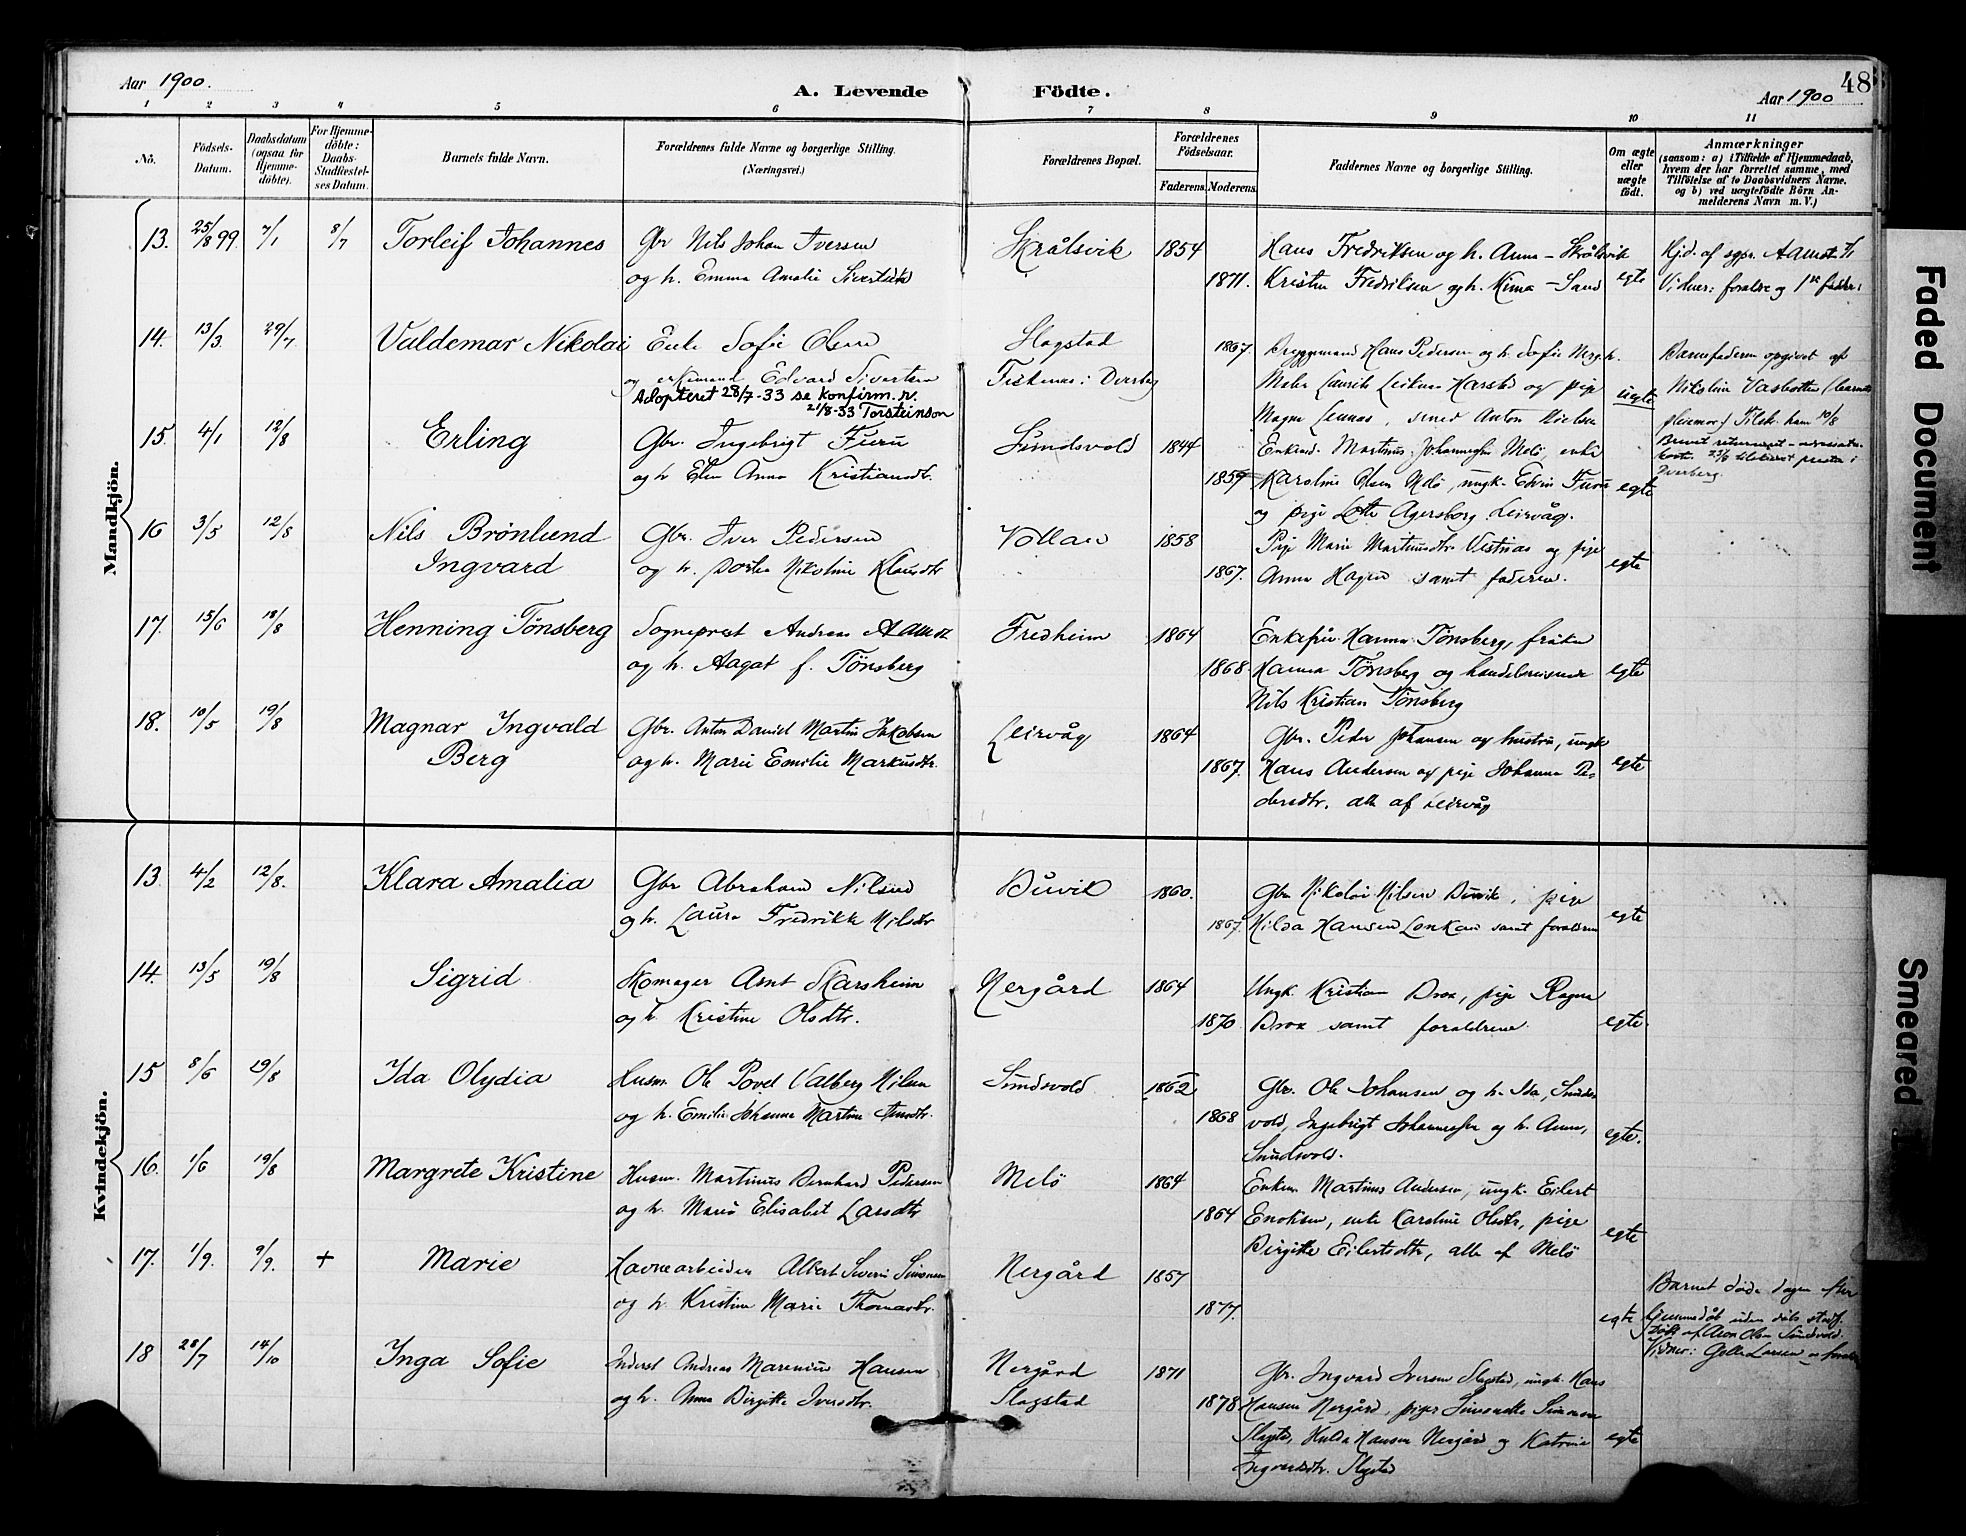 Aar 1900.
A. Levende Födte.
Aar 1900
48
1 2 3 4 5 6 7 8 9 10 11
No.
Födsels-Datum.
Daabsdatum (ogsaa for Hjemme-döbte).
For Hjemme-döbte: Daabs-Stadfæstel-ses Datum.
Barnets fulde Navn.
Forældrenes fulde Navne og borgerlige Stilling.
(Næringsvei.)
Forældrenes Bopæl.
Forældrenes Födselsaar.
Faderens. Moderens.
Faddernes Navne og borgerlige Stilling.
Om ægte eller uægte födt.
Anmærkninger
(saasom: a) i Tilfælde af Hjemmedaab,
hvem der har forrettet samme, med
Tilföielse af to Daabsvidners Navne,
og b) ved uægtefödte Börn An-
melderens Navn m. V.)
Mandkjön.
13. 25/8 99. 7/1 8/7 Torleif Johannes Gbr Nils Johan Iversen Skrålsvik 1854 Hans Fredriksen og h. Anna - Skrålsvik Hjd. af sgpr. Aamodt
og h. Emma Amalie 1871. Kristen Fredriksen og h. - Sand egte Vidner: foraldre og 1ste fadder
14. 13/3 29/7 Valdemar Nikolai Enke Sofie Olsen Slagstad 1867. Bryggemand Hans Pedersen og h. Sofie Barnefaderen opgivet af
og Edvard Sivertsen i Dverberg Maler Laurits og pige uegte Nikoline
Adopteret 28/7-33 se Konfirm.r.
21/8-33 Torsteinson
smed Anton Nielsen
15. 4/1 12/8 Erling Gbr. Ingebrigt Furu Sundsvold 1844 Martinus Johannessen Melö, enke Brevet returneret
og h Elen Anna Kristiansdtr. 1859 Karoline Olsen Melö, ungk. Edvin Furu egte Dverberg
og pige Lotte Agersborg Leirvåg.
16 3/5 12/8 Nils Brönlund Gbr. Iver Pedersen Vollan 1858 Pige Marie Martinusdtr. Vestnæs og pige
Ingvard og h. Dortea Nikoline Klausdtr 1867. Anna Hagen samt faderen. egte
17. 15/6 18/8 Henning Tönsberg Sogneprest Andreas Aamodt Fredheim 1864 Enkefru Hanna Tönsberg, fröken
og h. Aagot f. Tönsberg 1868. Hanna Tönsberg og handelsreisende egte
Nils Kristian Tönsberg
18. 10/5 19/8 Magnar Ingvald Gbr. Anton Daniel Martin Jakobsen Leirvåg 1864 Gbr. Peder Johansen og hustru, ungk
Berg og h. Marie Emilie Markusdtr. 1867. Hans Andersen og pige Johanna Pe- egte
dersdtr. alle af Leirvåg
Kvindekjön.
13. 4/2 12/8. Klara Amalia Gbr Abraham Nilsen Buvik 1860. Gbr Nikolai Nilsen Buvik, pige
og h. Laura Fredrikke Nilsdtr 1867. Hilda Hansen Lenkan samt foraldrene egte
14. 13/5 19/8 Sigrid Skomager Arnt Skarsheim Nergård 1864 Ungk. Kristian Brox, pige Ragna
og h. Kristine Olsdtr. 1870. Brox samt foraldrene egte.
15 8/6 19/8 Ida Olydia Husm. Ole Povel Valberg Nilsen Sundsvold 1862 Gbr. Ole Johansen og h. Ida, Sunds-
og h. Emilie Johanna Martine 1868 vold, Ingebrigt Johannessen og h. Anna, egte.
Sundsvold.
16. 1/6 19/8 Margrete Kristine Husm. Martinus Bernhard Pedersen Melö 1864 Enkem. Martinus Andersen, ungk. Eilert
og h. Marie Elisabet Larsdtr 1864 Enoksen, enke Karoline Olsdtr, pige egte
Birgitte Eilertsdtr, alle af Melö
17. 1/9. 9/9. + Marie Havnearbeider Albert Severin Simonsen Nergård 1857 Barnet döde dagen efter
og h. Kristine Marie Thomasdtr. 1877. egte hjemmedåb uden dåbs stadf.
Döbt af Aron Olsen Sundsvold.
Vidner: Larsen og
18 28/7 14/10 Inga Sofie Inderst Andreas Marenius Hansen Nergård 1871 Gbr. Ingvard Iversen Slagstad, ungk. Hans
og h. Anna Birgitte Iversdtr. Slagstad 1878. Hansen Nergård, piger Simonette Simonsen
Slagstad, Hulda Hansen Nergård og Katrine egte
Ingvardsdtr. Slagstad
Faded Document
Smeared